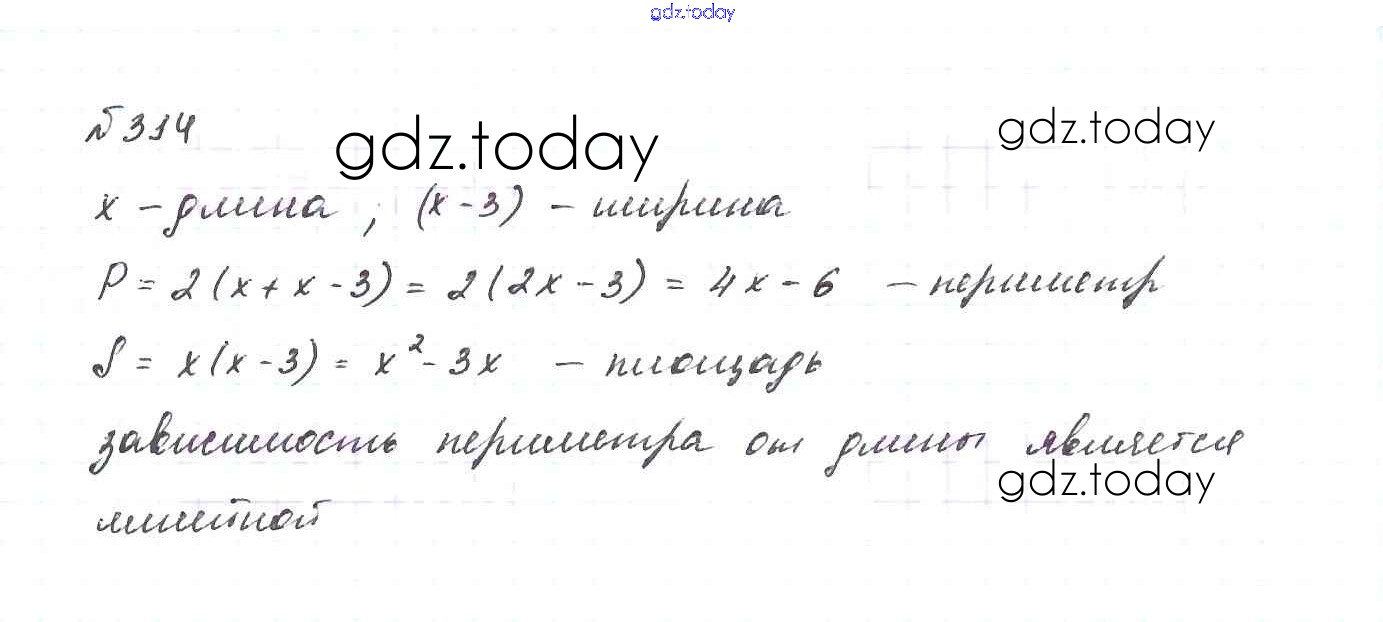 gdz.today
№314
gdz.today
gdz.today
x – длина, (x - 3) – ширина
P = 2(x + x - 3) = 2(2x - 3) = 4x - 6 – периметр
S = x(x - 3) = x² - 3x – площадь
зависимость периметра от длины является
gdz.today
линейной